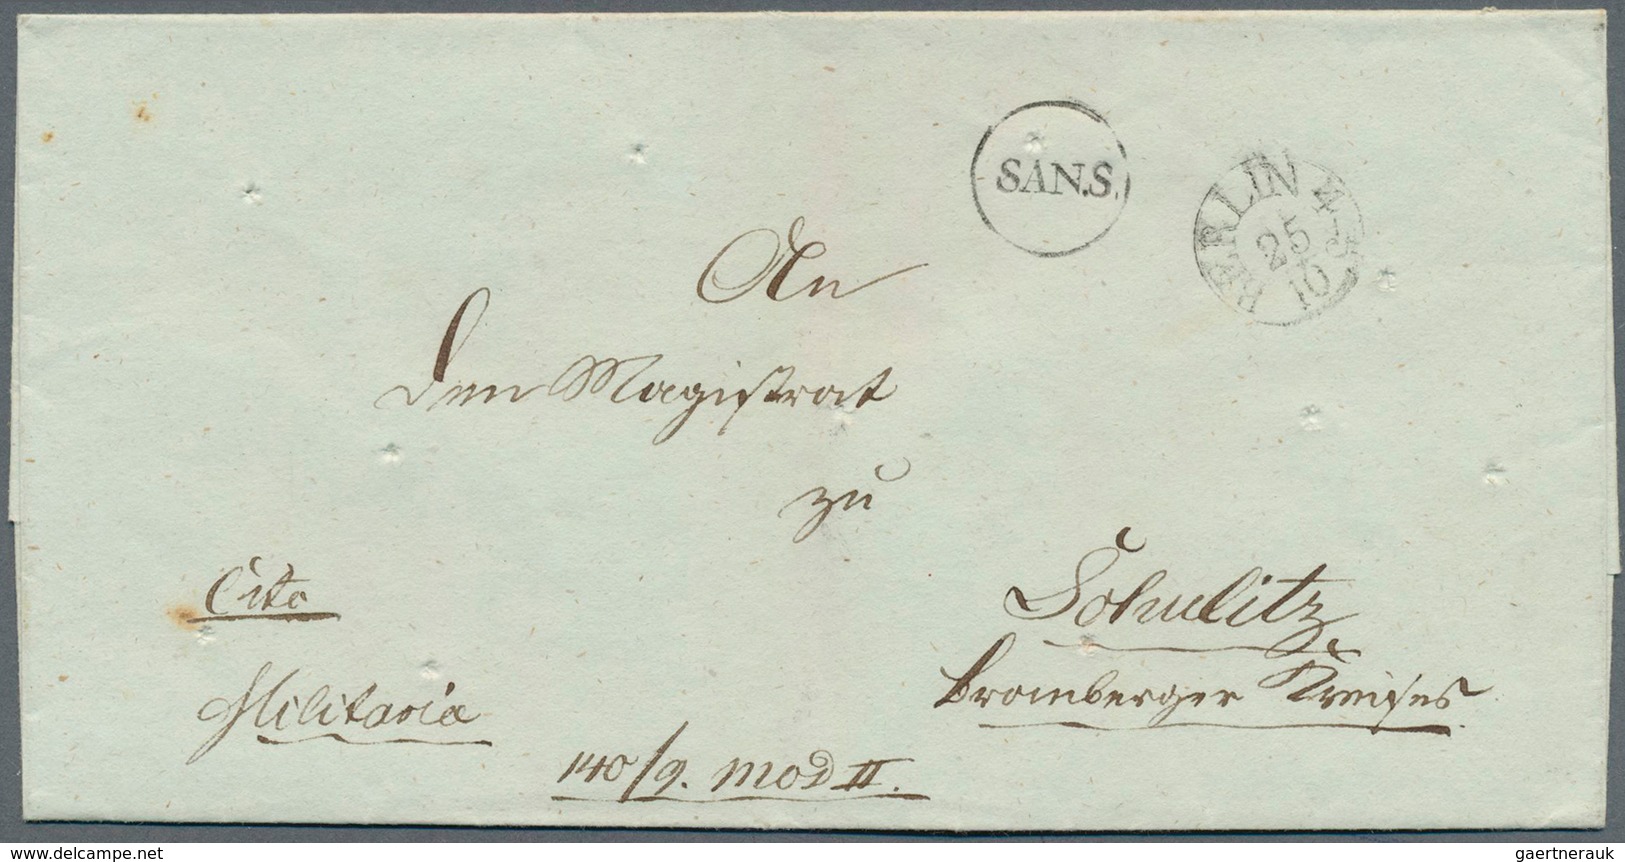 SAN.S.
BERLIN 4-5
25
10
An
den Magistrat
zu
Schulitz
Bromberger Kreises
Cito
Militaria
140/9. mod II.
delcampe.net
gaertnerauk